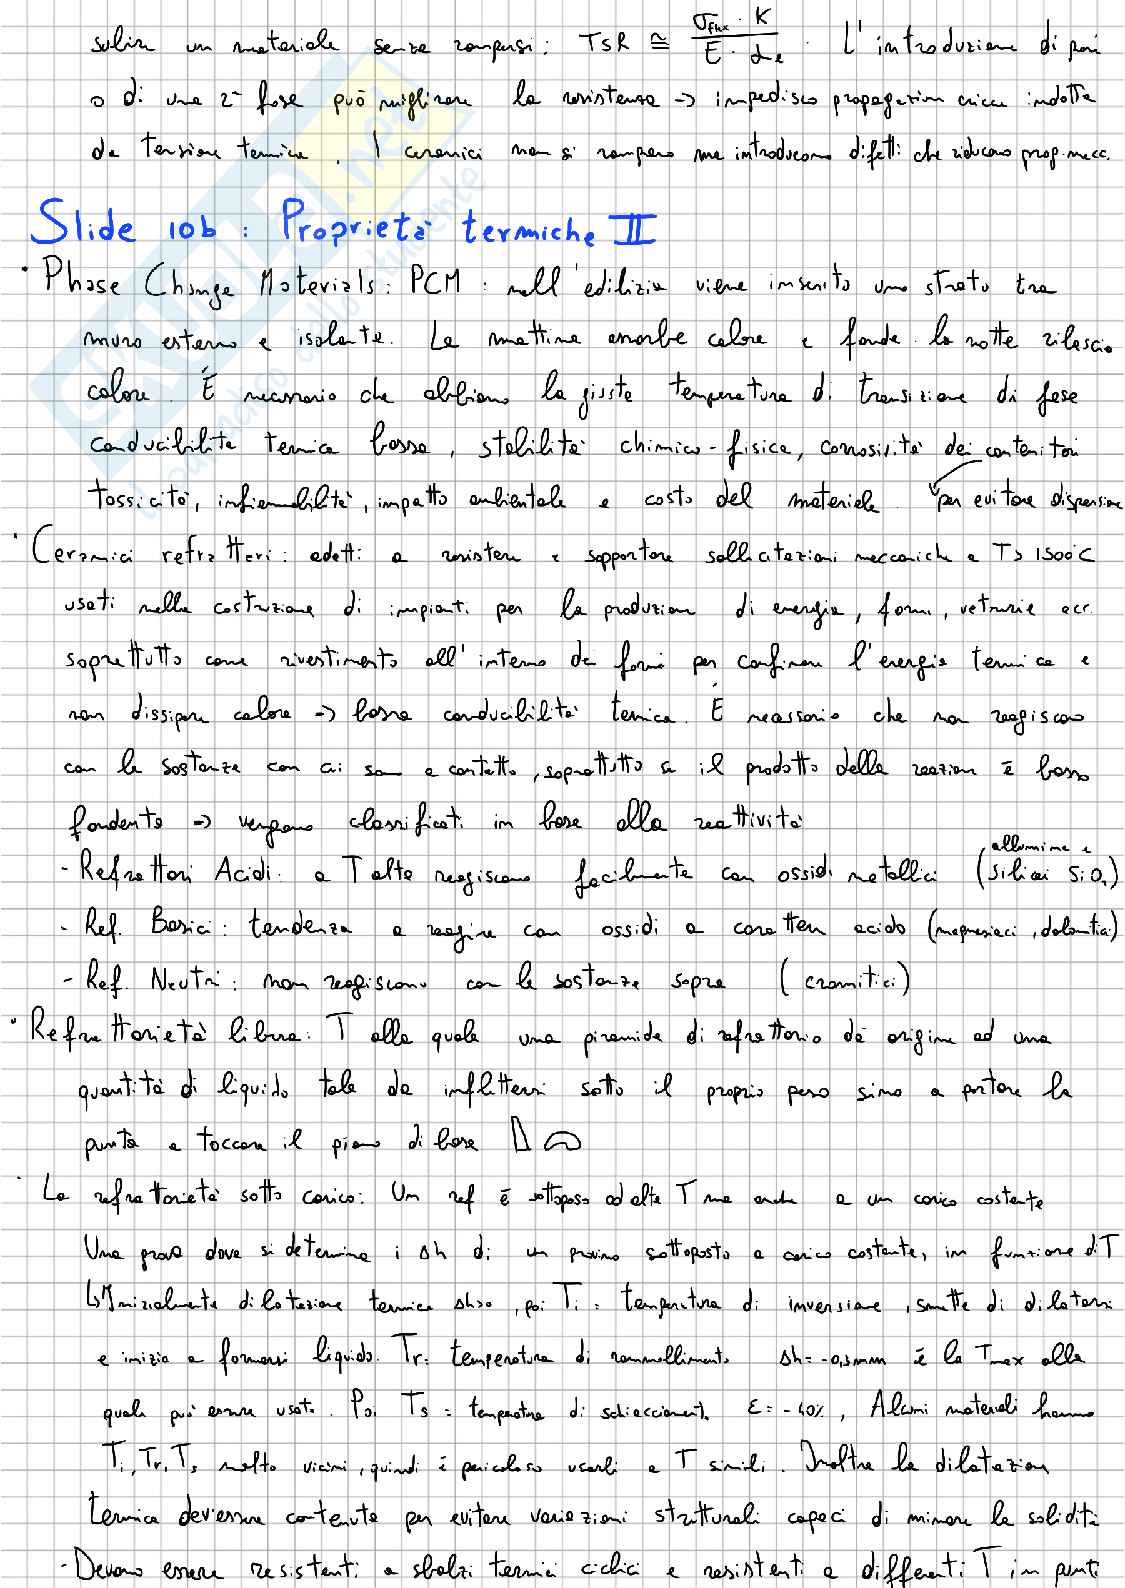 subire un materiale senza rompersi: TSR ≅ σflex · K / E · αe . L'introduzione di pori
o di una 2ª fase può migliorare la resistenza -> impedisco propagazion cricca indotta
da tensione termica. I ceramici non si rompono ma introducono difetti che riducono prop. mecc.
Slide 10b : Proprietà termiche II
· Phase Change Materials: PCM : nell'edilizia viene inserito uno strato tra
muro esterno e isolante. La mattina assorbe calore e fonde. la notte rilascia
calore. É necessario che abbiano la giusta temperatura di transizione di fase
conducibilità termica bassa, stabilità chimico-fisica, corrosività dei contenitori
tossicità, infiammabilità, impatto ambientale e costo del materiale. per evitare dispersione
· Ceramici refrattari: adatti a resistere e sopportare sollecitazioni meccaniche a T> 1500°C
usati nella costruzione di impianti per la produzione di energia, forni, vetrerie ecc.
soprattutto come rivestimento all'interno dei forni per confinare l'energia termica e
non dissipare calore -> bassa conducibilità termica. É necessario che non reagiscano
con le sostanze con cui sono a contatto, soprattutto se il prodotto della reazione è basso
fondente -> vengono classificati in base alla reattività
- Refrattari Acidi: a T alte reagiscono facilmente con ossidi metallici (allumina e silicei SiO2)
- Ref. Basici: tendenza a reagire con ossidi a carattere acido (magnesiaci, dolomitici)
- Ref. Neutri: non reagiscono con le sostanze sopra (cromitici)
· Refrattarietà libera: T alla quale una piramide di refrattario dà origine ad una
quantità di liquido tale da inflettersi sotto il proprio peso sino a portare la
punta a toccare il piano di base
· La refrattarietà sotto carico: Un ref è sottoposo ad alte T ma anche a un carico costante
Una prova dove si determina i Δh di un provino sottoposto a carico costante, in funzione di T
↳ Inizialmente dilatazione termica Δh>0, poi Ti = temperatura di inversione, smette di dilatarsi
e inizia a formarsi liquido. Tr= temperatura di rammollimento Δh= -0,3mm è la Tmax alla
quale può essere usato. Poi Ts = temperatura di schiacciamento ε= -40%, Alcuni materiali hanno
Ti, Tr, Ts molto vicini, quindi è pericoloso usarli a T simili. Inoltre la dilatazione
termica dev'essere contenuta per evitare variazioni strutturali capaci di minare la solidità
- Devono essere resistenti a sbalzi termici ciclici e resistenti a differenti T in punti